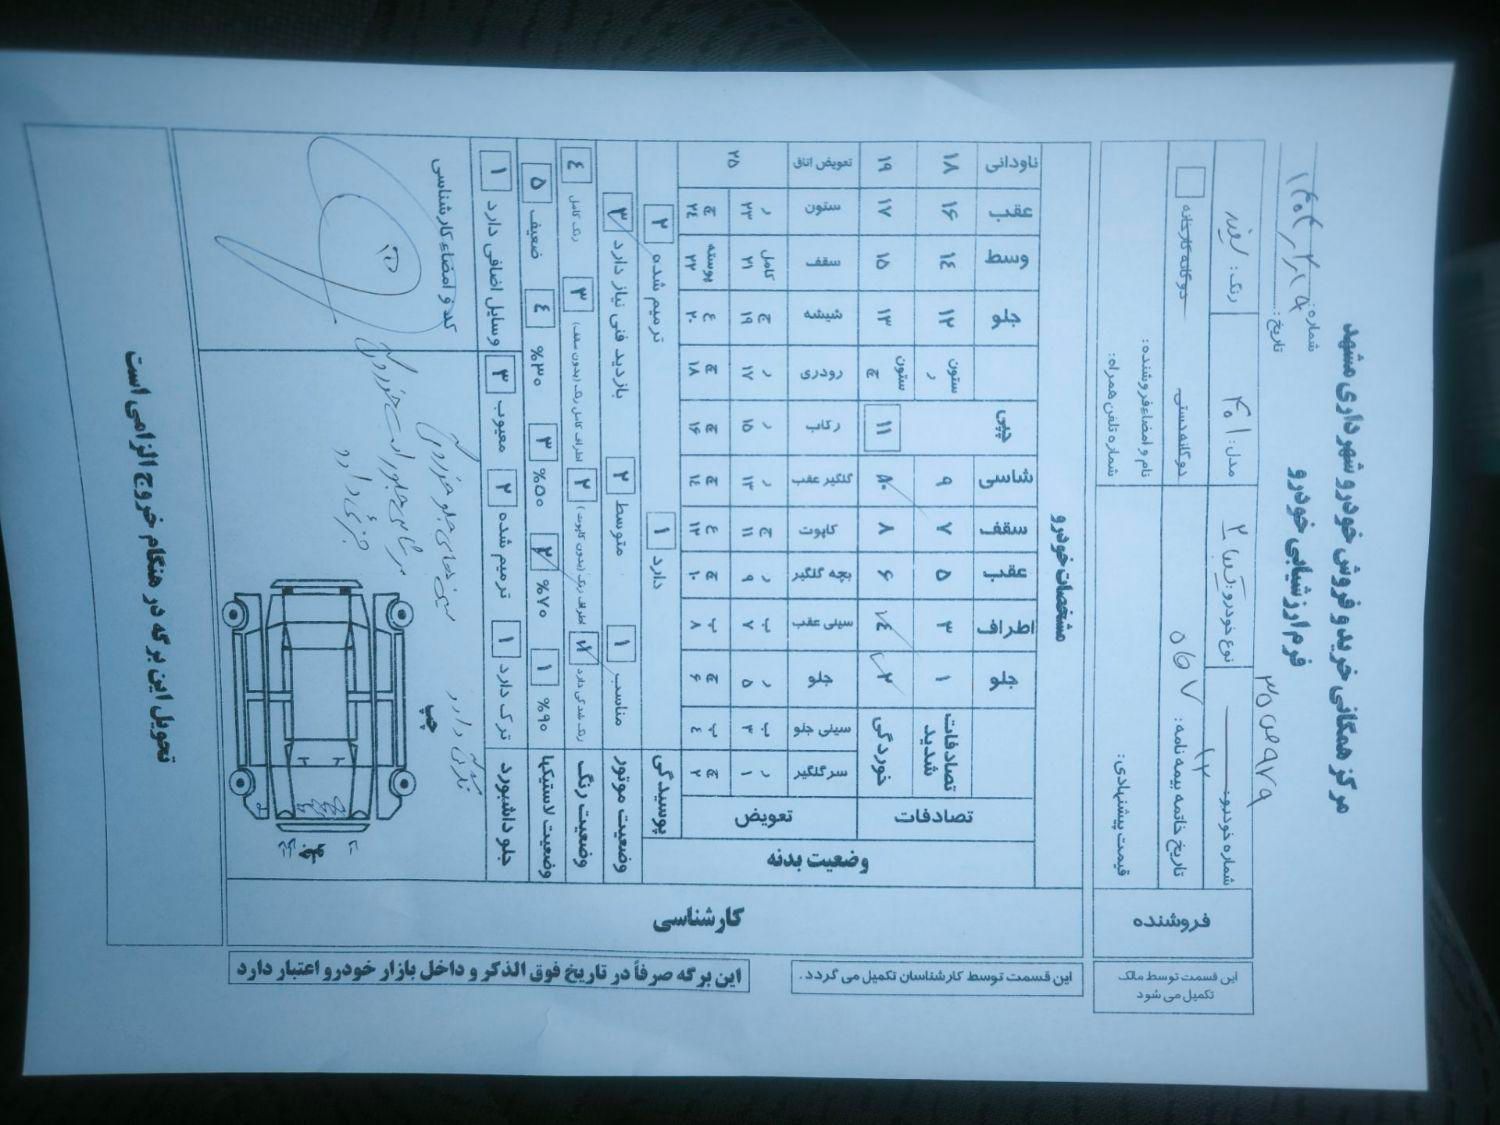 مرکز همگانی خرید و فروش خودرو شهرداری مشهد
فرم ارزشیابی خودرو
شماره:
تاریخ:
این قسمت توسط مالک تکمیل می شود
فروشنده
شماره خودرو: نوع خودرو: مدل: ۴۰۱ رنگ:
تاریخ خاتمه بیمه نامه: دوگانه دستی دوگانه کارخانه
قیمت پیشنهادی: نام و امضاء فروشنده:
شماره تلفن همراه:
این قسمت توسط کارشناسان تکمیل می گردد.
این برگه صرفاً در تاریخ فوق الذکر و داخل بازار خودرو اعتبار دارد
کارشناسی
مشخصات خودرو
وضعیت بدنه
تصادفات
جلو اطراف عقب سقف شاسی چپی جلو وسط عقب ناودانی
تصادفات شدید ۱ ۳ ۵ ۷ ۹ ستون ر ۱۲ ۱۴ ۱۶ ۱۸
خوردگی ۲ ۴ ۶ ۸ ۱۰ ۱۱ ستون چ ۱۳ ۱۵ ۱۷ ۱۹
تعویض
سرگلگیر سینی جلو جلو سینی عقب بچه گلگیر کاپوت گلگیر عقب رکاب رودری شیشه سقف ستون تعویض اتاق
ر ۱ ب ۳ ر ۵ ب ۷ ر ۹ ج ۱۱ ر ۱۳ ر ۱۵ ر ۱۷ ج ۱۹ کامل ۲۱ ر ۲۳ ۲۵
چ ۲ ب ۴ چ ۶ ب ۸ چ ۱۰ ع ۱۲ چ ۱۴ چ ۱۶ چ ۱۸ ع ۲۰ پوسته ۲۲ چ ۲۴
پوسیدگی دارد ۱ ترمیم شده ۲
وضعیت موتور مناسب ۱ متوسط ۲ بازدید فنی نیاز دارد ۳
وضعیت رنگ رنگ شدگی دارد ۱ اطراف رنگ (بدون کاپوت) ۲ اطراف کامل رنگ (بدون سقف) ۳ رنگ کامل ۴
وضعیت لاستیکها ۹۰% ۱ ۷۰% ۲ ۵۰% ۳ ۳۰% ۴ ضعیف ۵
جلو داشبورد ترک دارد ۱ ترمیم شده ۲ معیوب ۳ وسایل اضافی دارد ۱
چپ
کد و امضاء کارشناسی
جزئی دارد
تحویل این برگه در هنگام خروج الزامی است